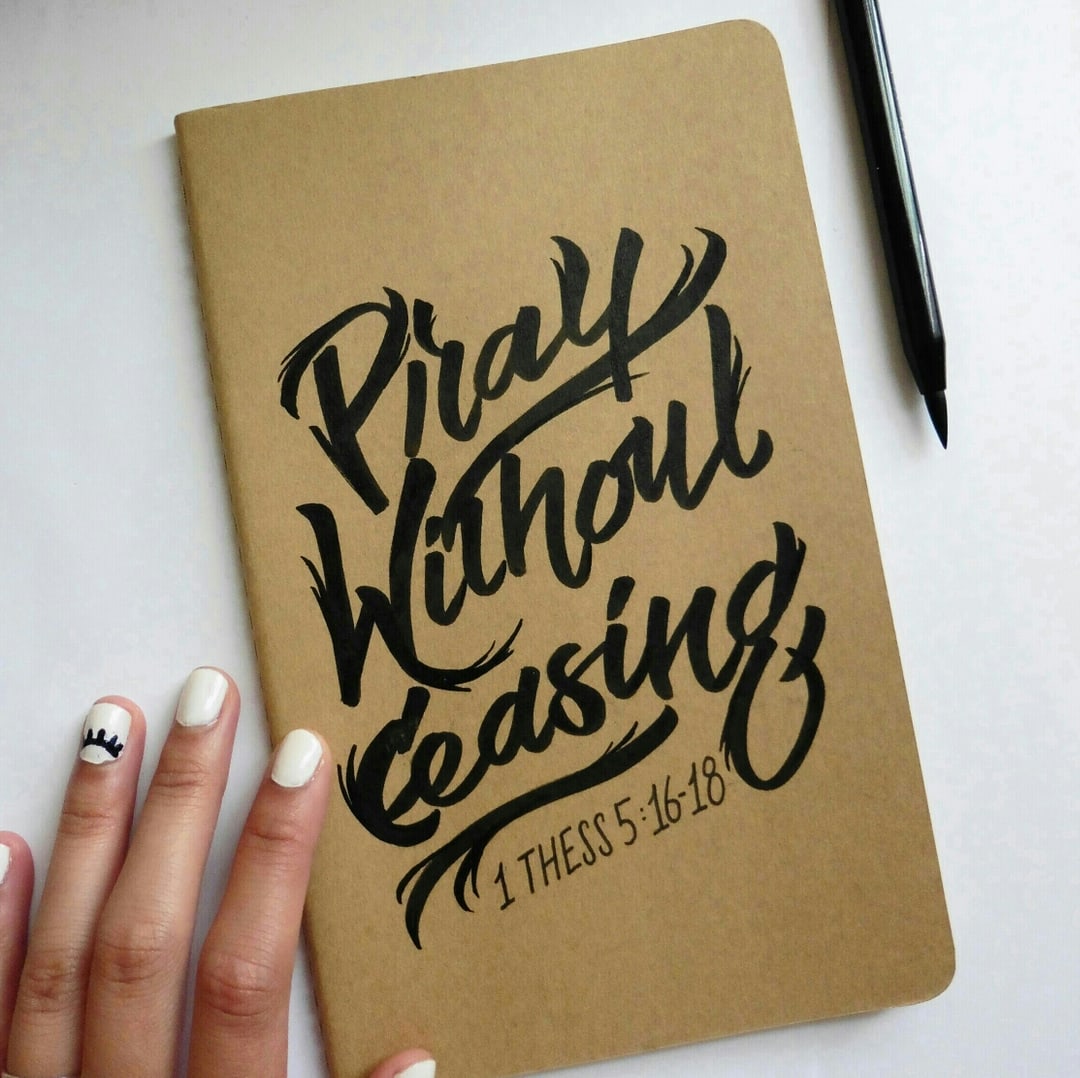 Pray
Without
Ceasing
1 THESS 5:16-18